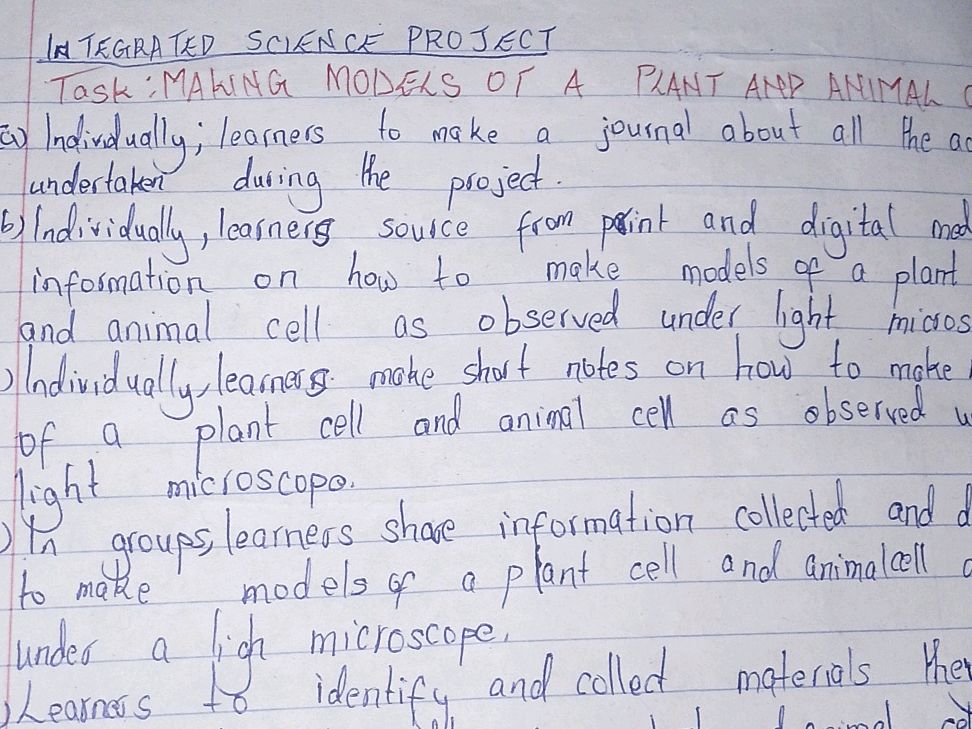 INTEGRATED SCIENCE PROJECT
Task: MAKING MODELS OF A PLANT AND ANIMAL
a) Individually; learners to make a journal about all the
undertaken during the project.
b) Individually, learners source from print and digital
information on how to make models of a plant
and animal cell as observed under light
) Individually, learners make short notes on how to make
of a plant cell and animal cell as observed
light microscope.
) In groups, learners share information collected and
to make models of a plant cell and animal cell
under a ligh microscope.
) Learners to identify and collect materials